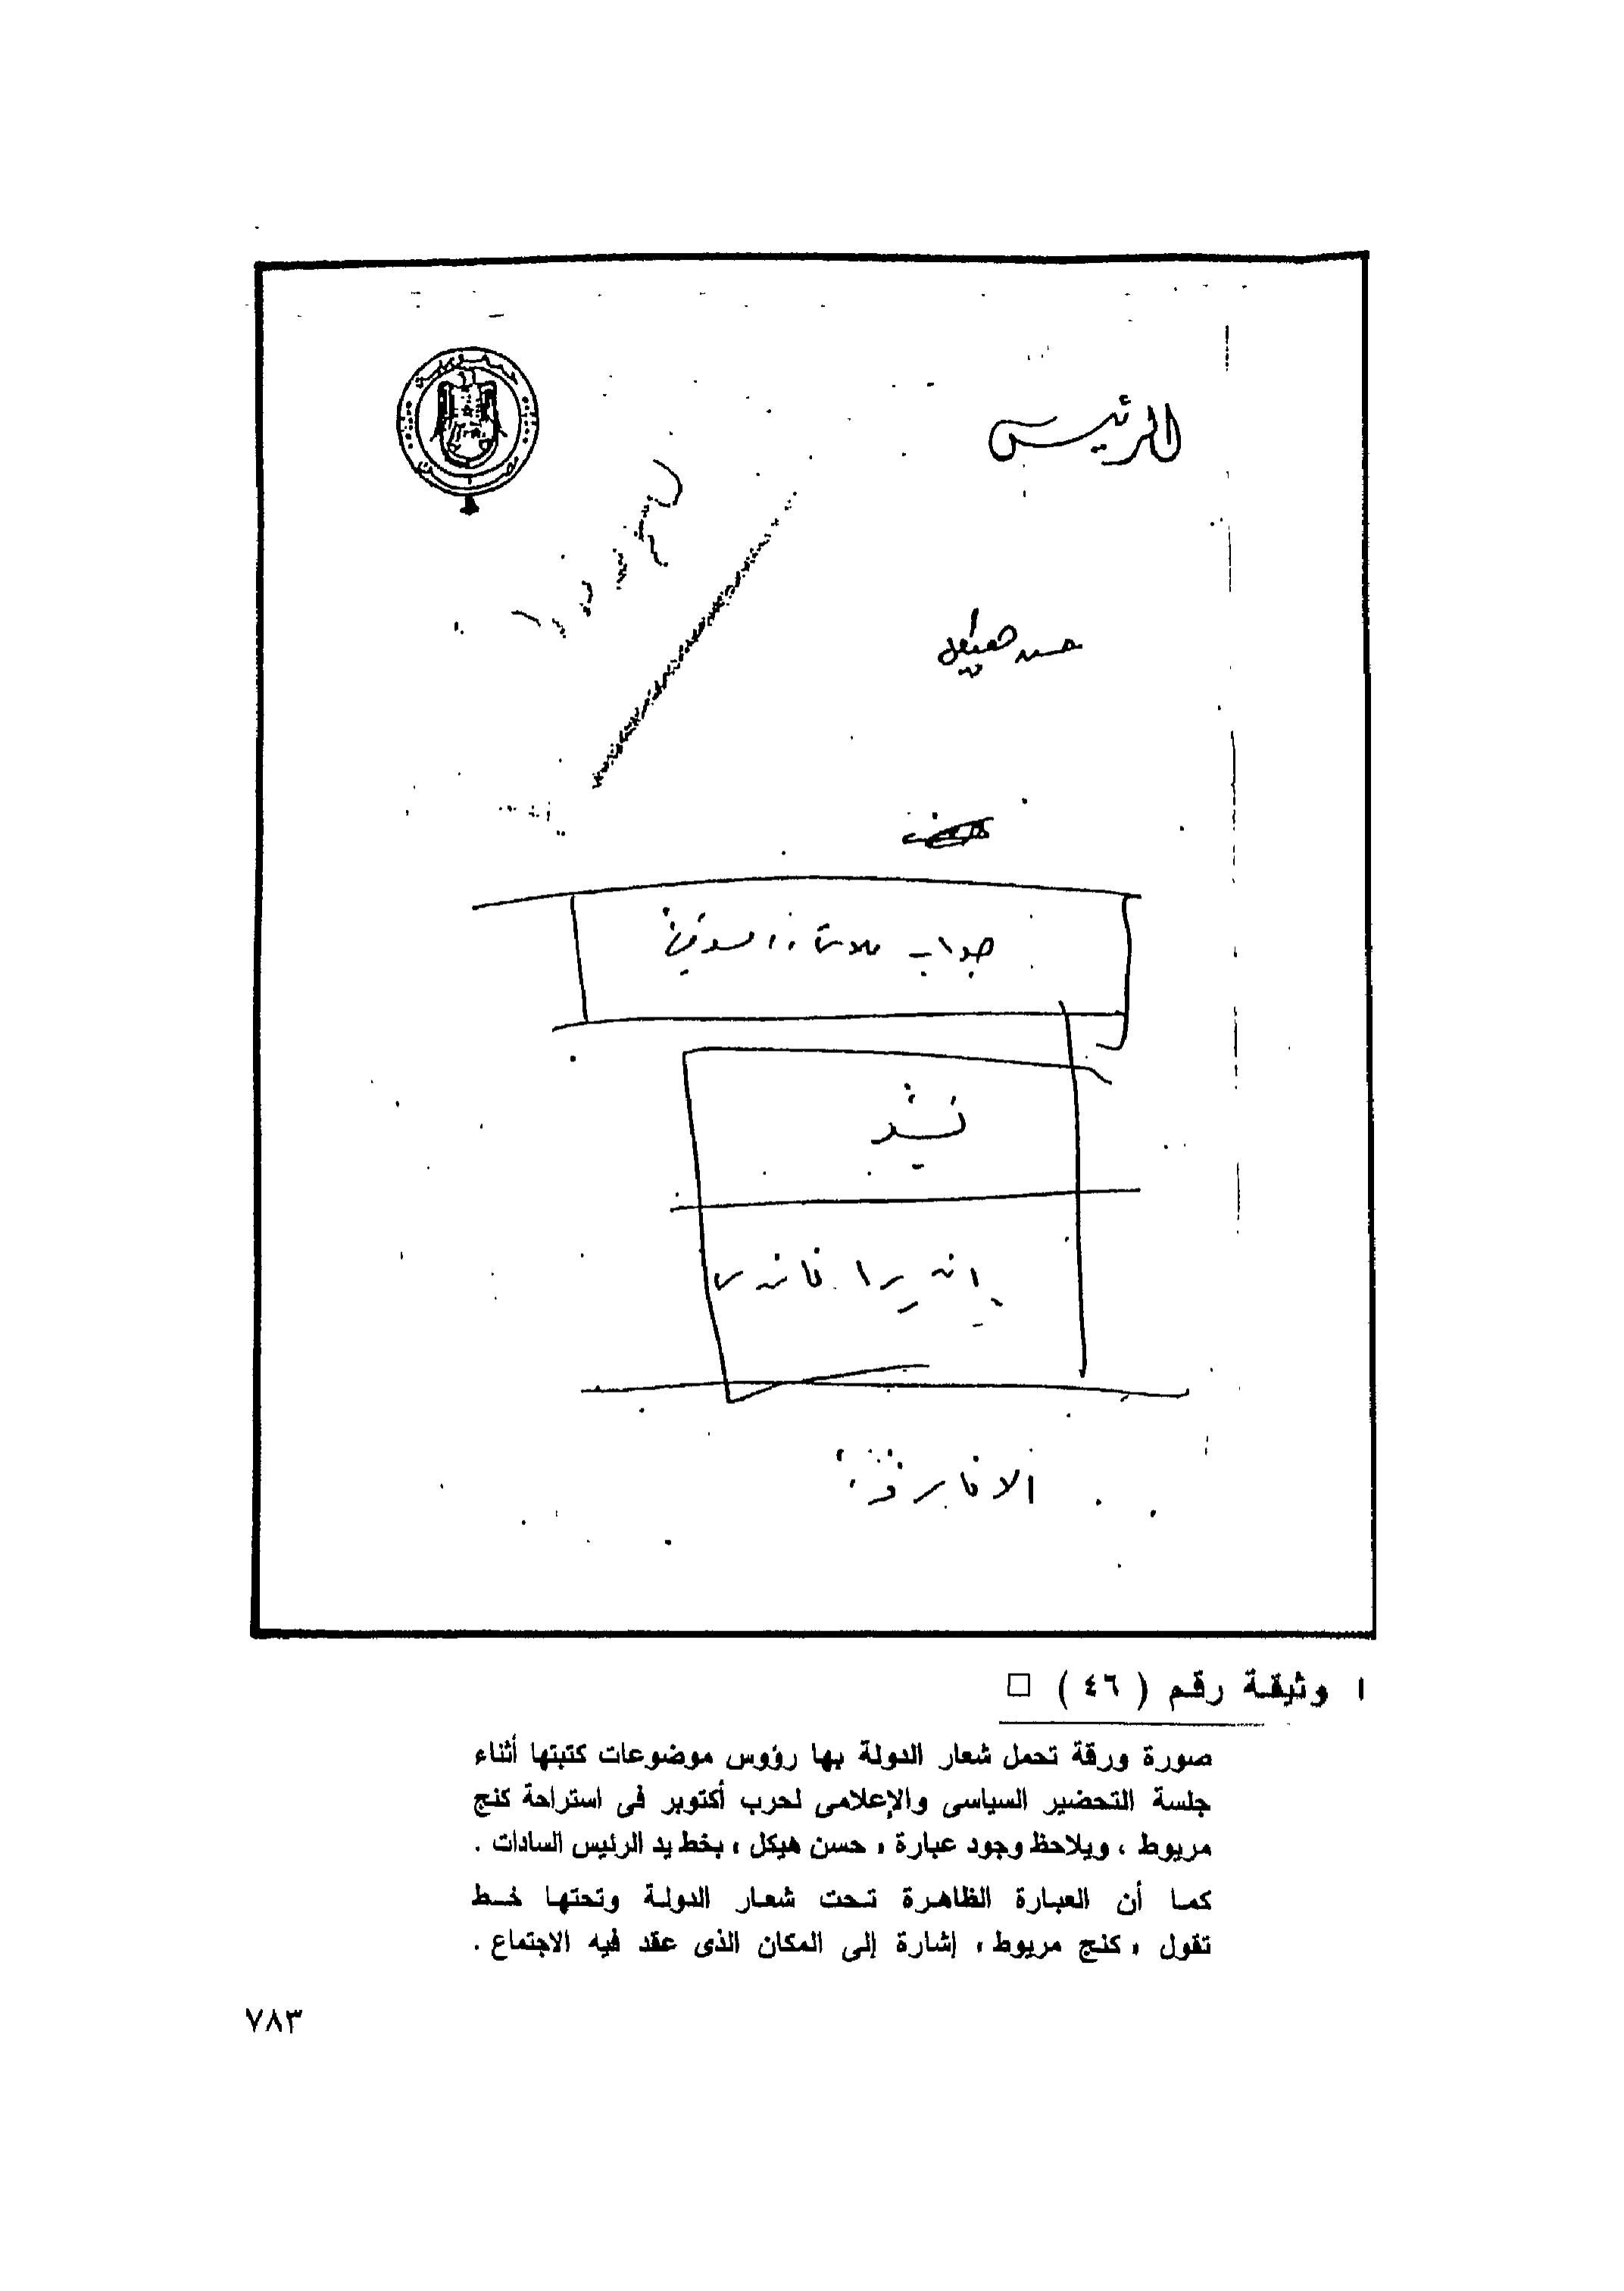 الرئيس
حسن هيكل
جواب للاتحاد السوفيتي
انديرا غاندى
الافارقة
وثيقة رقم ( ٤٦ ) □
صورة ورقة تحمل شعار الدولة بها رؤوس موضوعات كتبتها أثناء
جلسة التحضير السياسى والإعلامى لحرب أكتوبر فى استراحة كنج
مريوط ، ويلاحظ وجود عبارة « حسن هيكل » بخط يد الرئيس السادات .
كما أن العبارة الظاهرة تحت شعار الدولة وتحتها خط
تقول « كنج مريوط » إشارة إلى المكان الذى عقد فيه الاجتماع .
٧٨٣